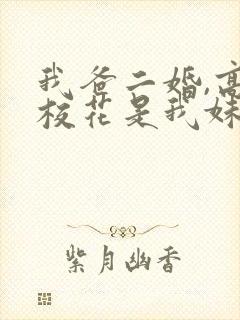 我爸二婚,高
校花是我妹
紫月幽香